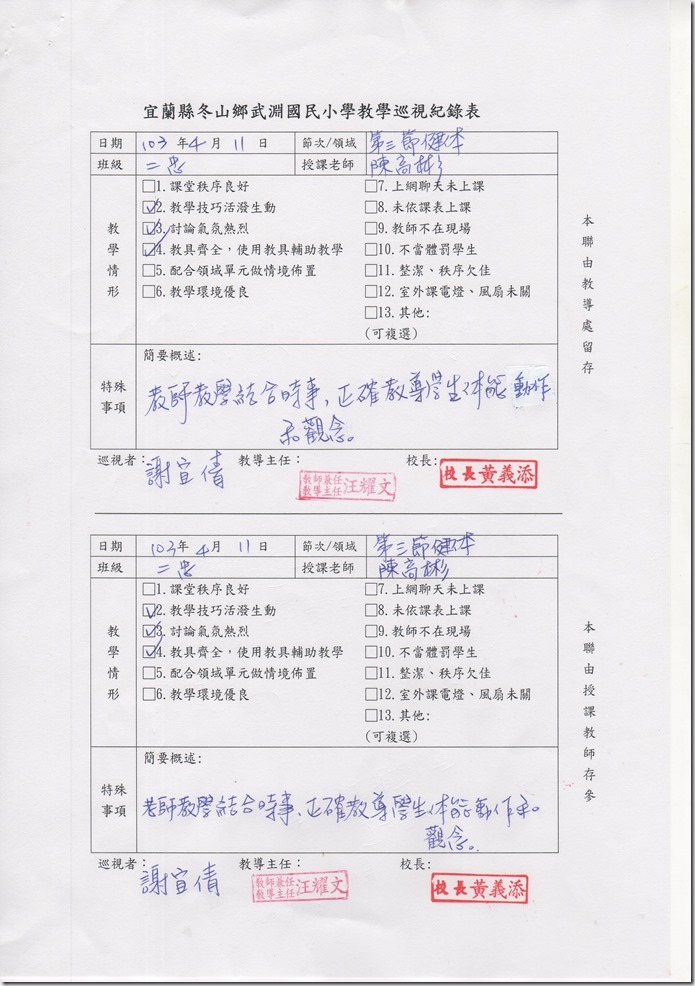 宜蘭縣冬山鄉武淵國民小學教學巡視紀錄表
日期 103 年 4 月 11 日 節次/領域 第三節健体
班級 二忠 授課老師 陳高彬
教學情形
□1.課堂秩序良好 □7.上網聊天未上課
☑2.教學技巧活潑生動 □8.未依課表上課
☑3.討論氣氛熱烈 □9.教師不在現場
☑4.教具齊全,使用教具輔助教學 □10.不當體罰學生
□5.配合領域單元做情境佈置 □11.整潔、秩序欠佳
□6.教學環境優良 □12.室外課電燈、風扇未關
□13.其他:
(可複選)
特殊事項
簡要概述:
教師教學結合時事、正確教導學生体能動作
和觀念。
巡視者: 謝宣倩 教導主任: 教師兼任教導主任 汪耀文 校長: 校長黃義添
本聯由教導處留存
日期 103 年 4 月 11 日 節次/領域 第三節健体
班級 二忠 授課老師 陳高彬
教學情形
□1.課堂秩序良好 □7.上網聊天未上課
☑2.教學技巧活潑生動 □8.未依課表上課
☑3.討論氣氛熱烈 □9.教師不在現場
☑4.教具齊全,使用教具輔助教學 □10.不當體罰學生
□5.配合領域單元做情境佈置 □11.整潔、秩序欠佳
□6.教學環境優良 □12.室外課電燈、風扇未關
□13.其他:
(可複選)
特殊事項
簡要概述:
老師教學結合時事、正確教導學生体能動作和
觀念。
巡視者: 謝宣倩 教導主任: 教師兼任教導主任 汪耀文 校長: 校長黃義添
本聯由授課教師存參